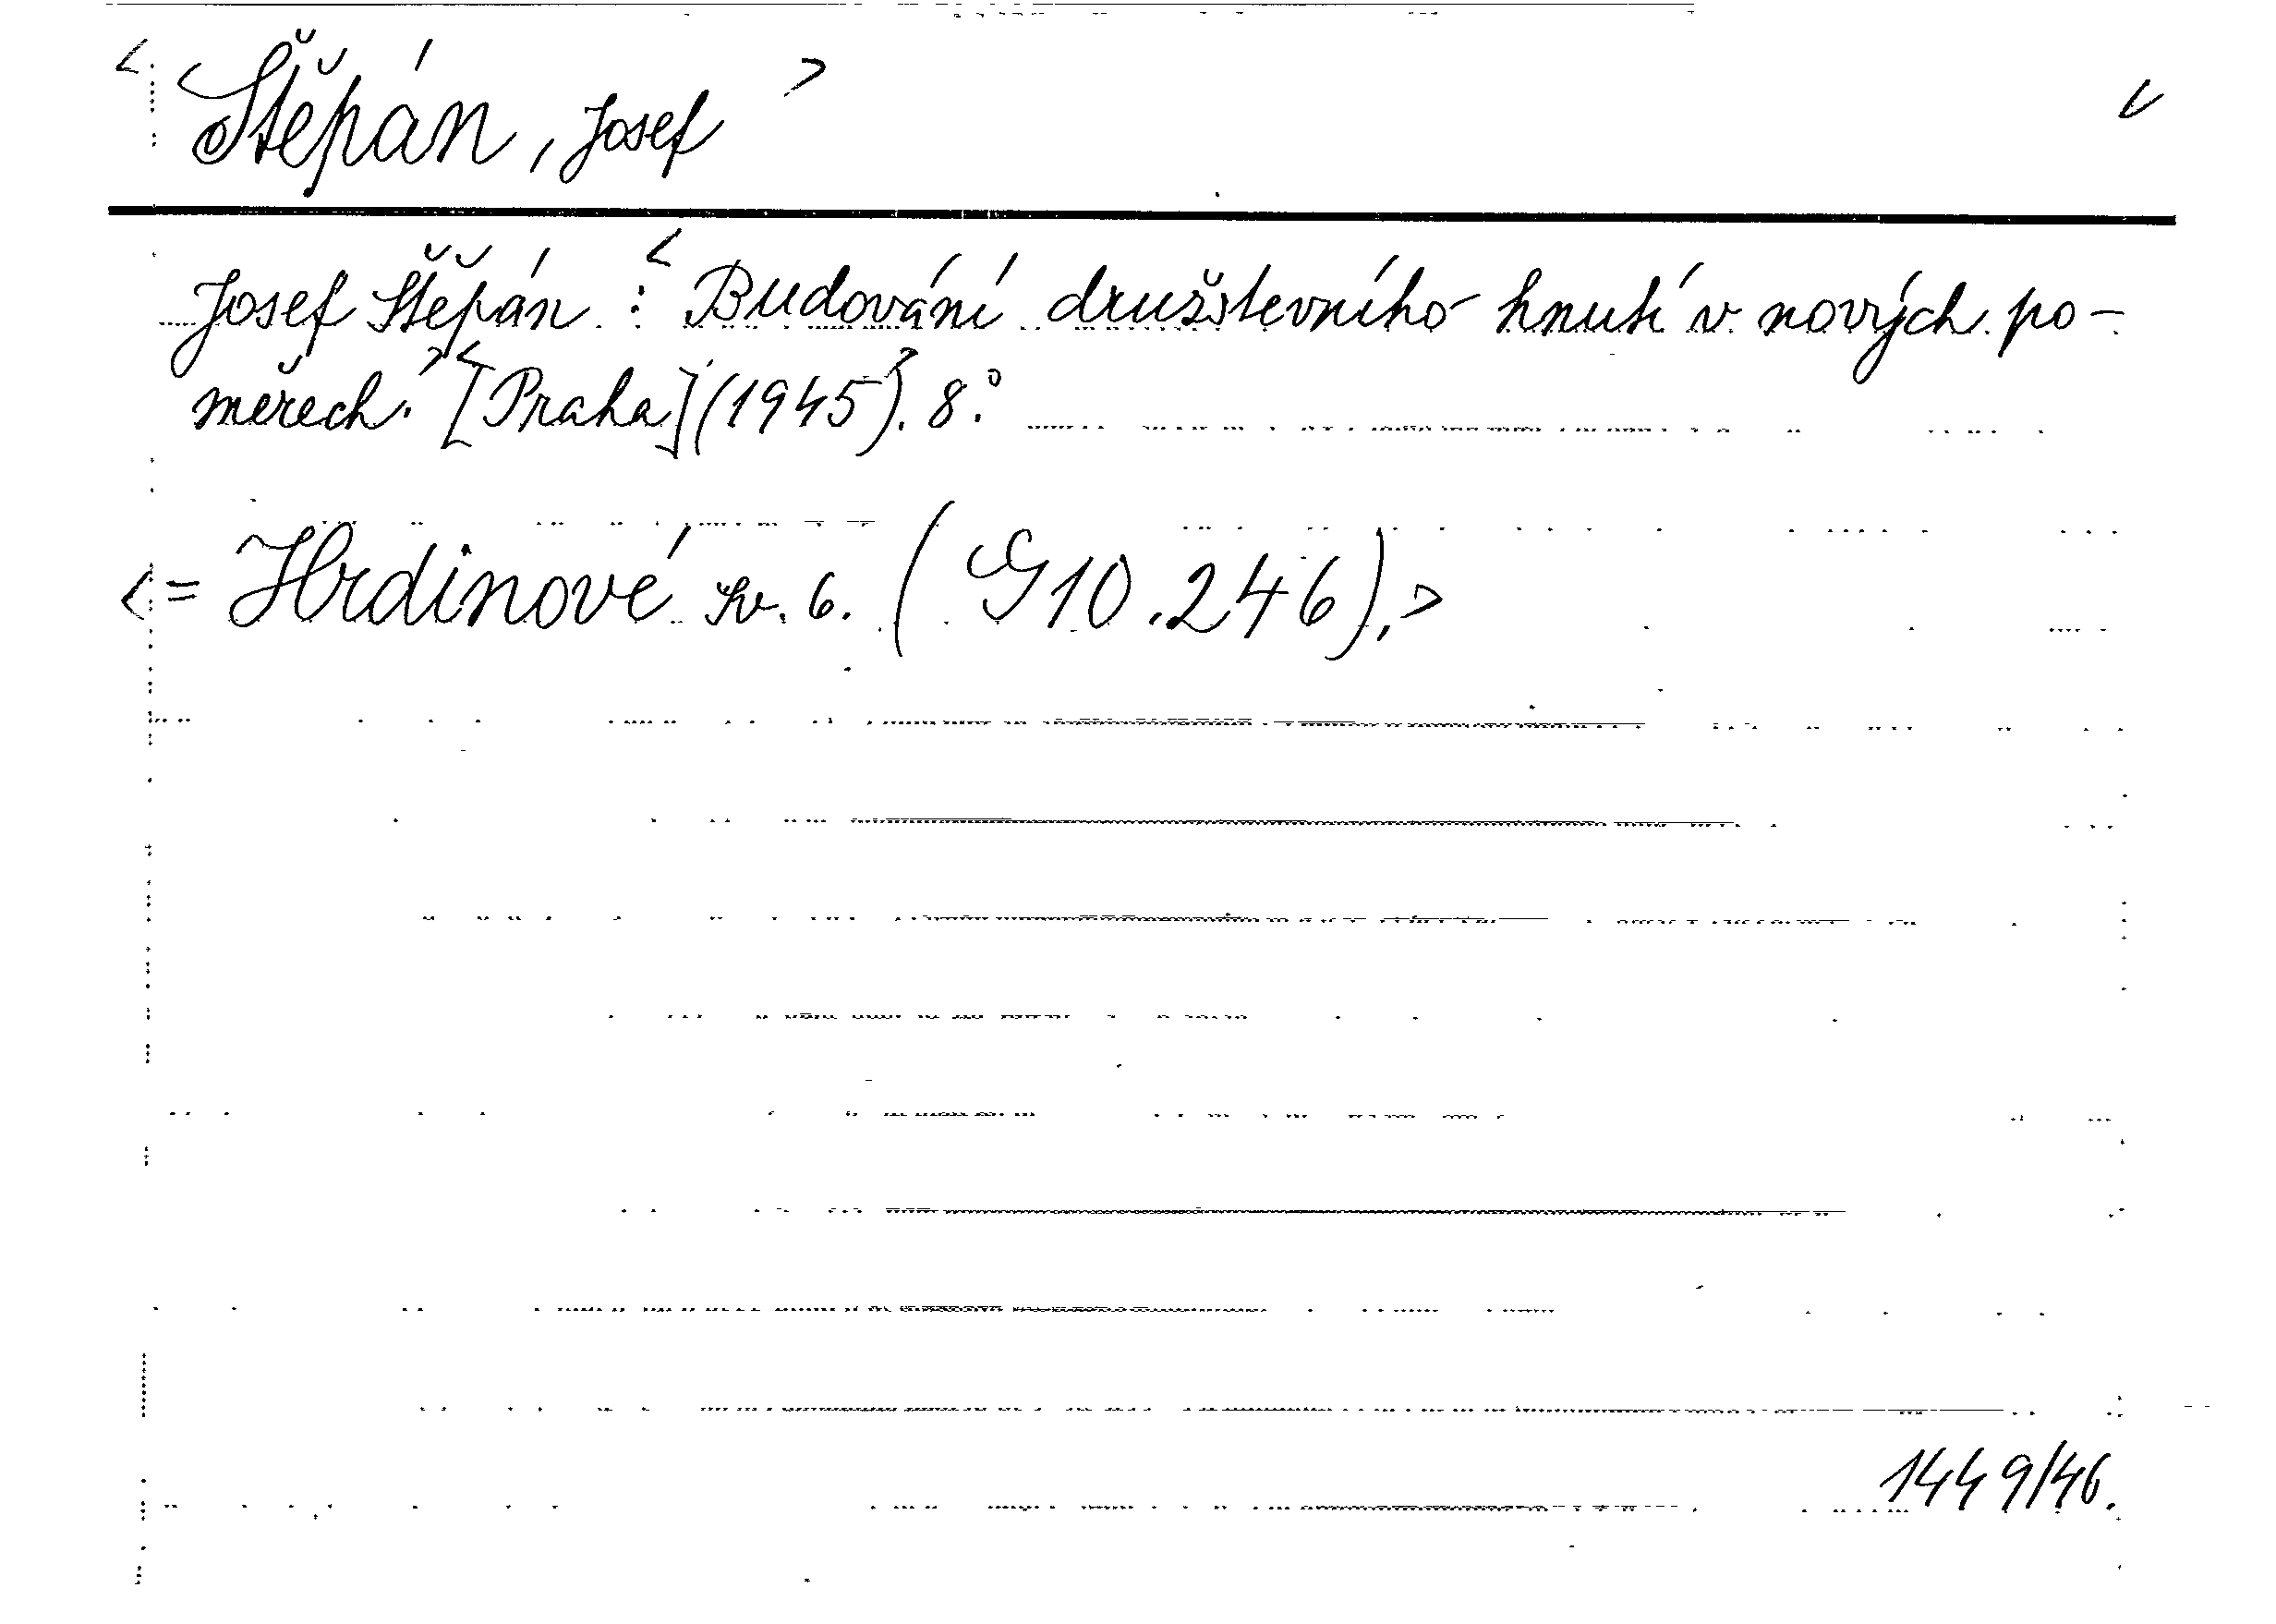 < Štěpán, Josef >
Josef Štěpán : < Budování družstevního hnutí v nových po-
měrech. > < [Praha] (1945). > 8.°
< = Hrdinové sv. 6. (G 10.246). >
1449/46.